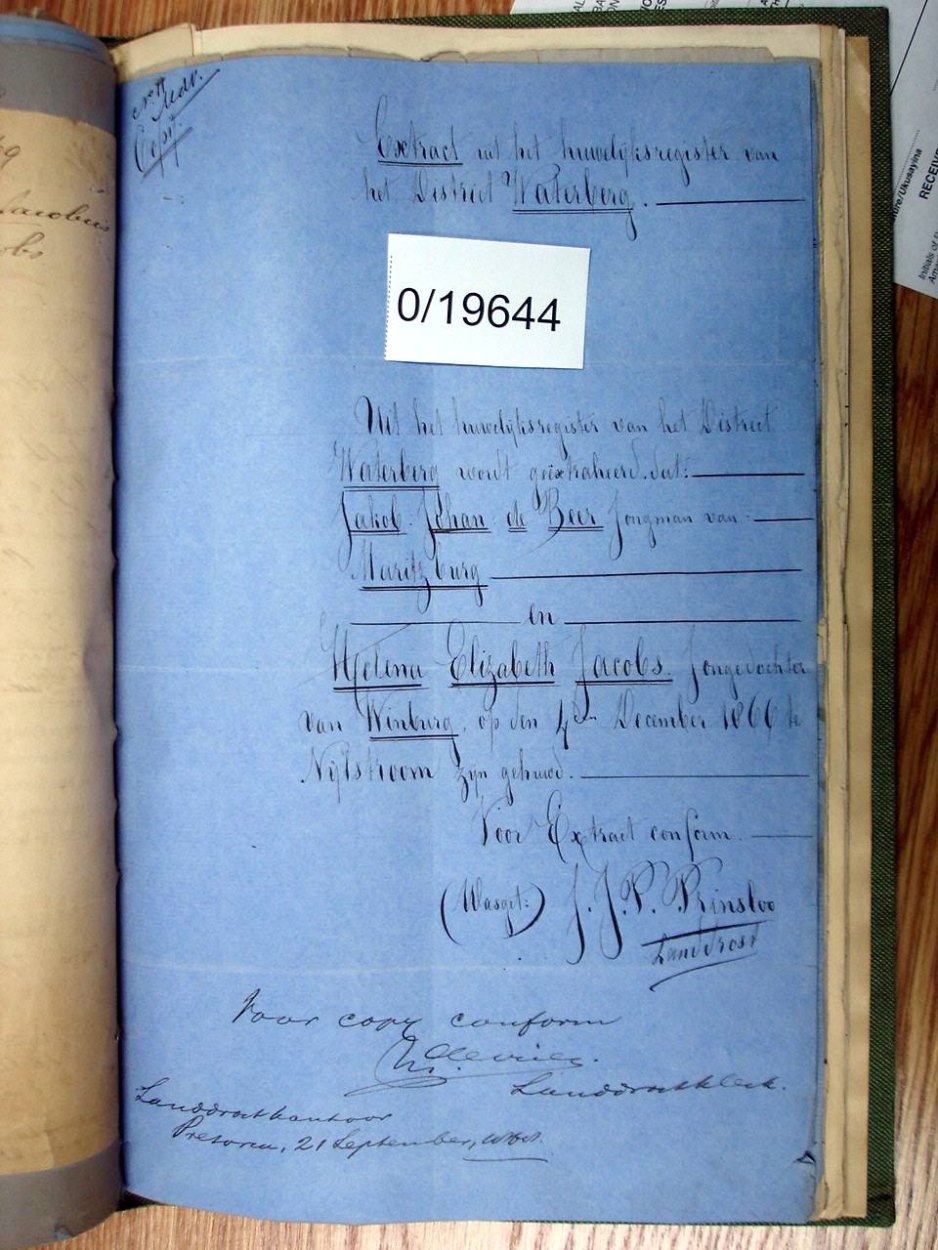 Copy.
Extract uit het huwelyksregister van
het District Waterberg.
0/19644
Uit het huwelyksregister van het District
Waterberg wordt geëxtraheerd dat:
Jakob Johan de Beer Jongman van
Maritzburg
en
Helena Elizabeth Jacobs. Jongedochter
van Winburg, op den 4den December 1866 te
Nylstroom zyn gehuwd.
Voor Extract conform.
(Wasget:) J. J. P. Prinsloo
Landdrost
Voor copy conform
Landdrostklerk.
Landdrostkantoor
Pretoria, 21 September,
RECEIVE